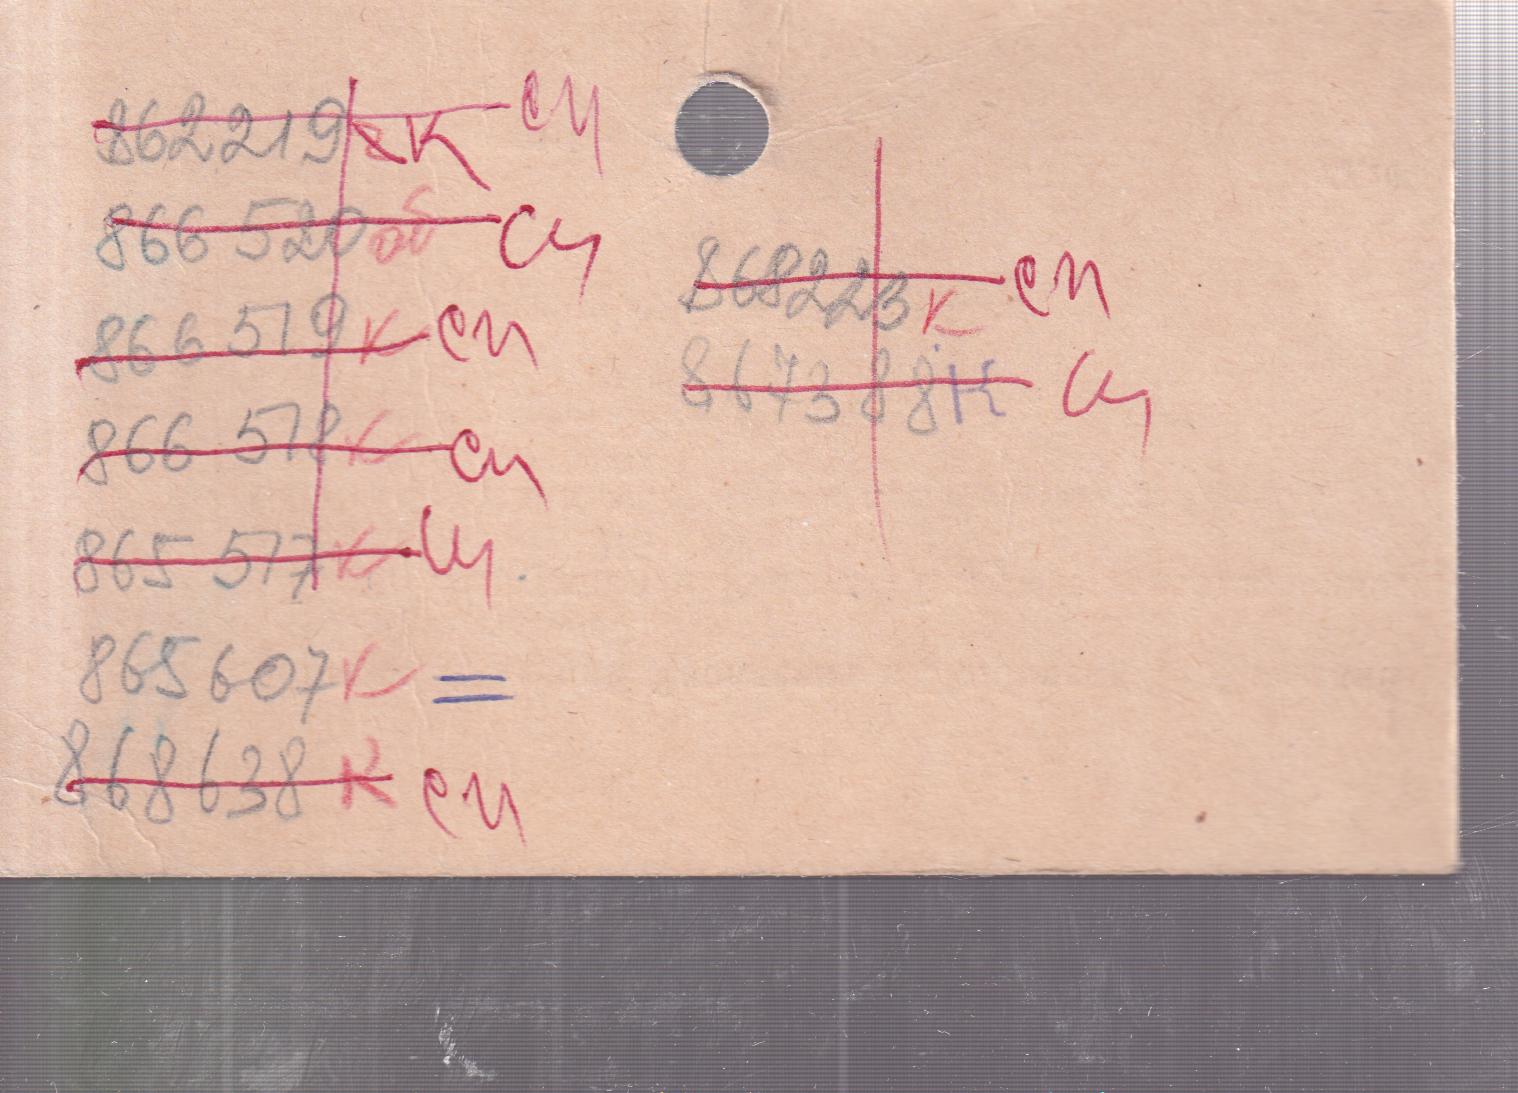 862219 к сч
866 520 об сч
866 519 к сч
866 518 к сч
865 517 к сч
865607 к =
868638 к сч
868223 к сч
867388 к сч